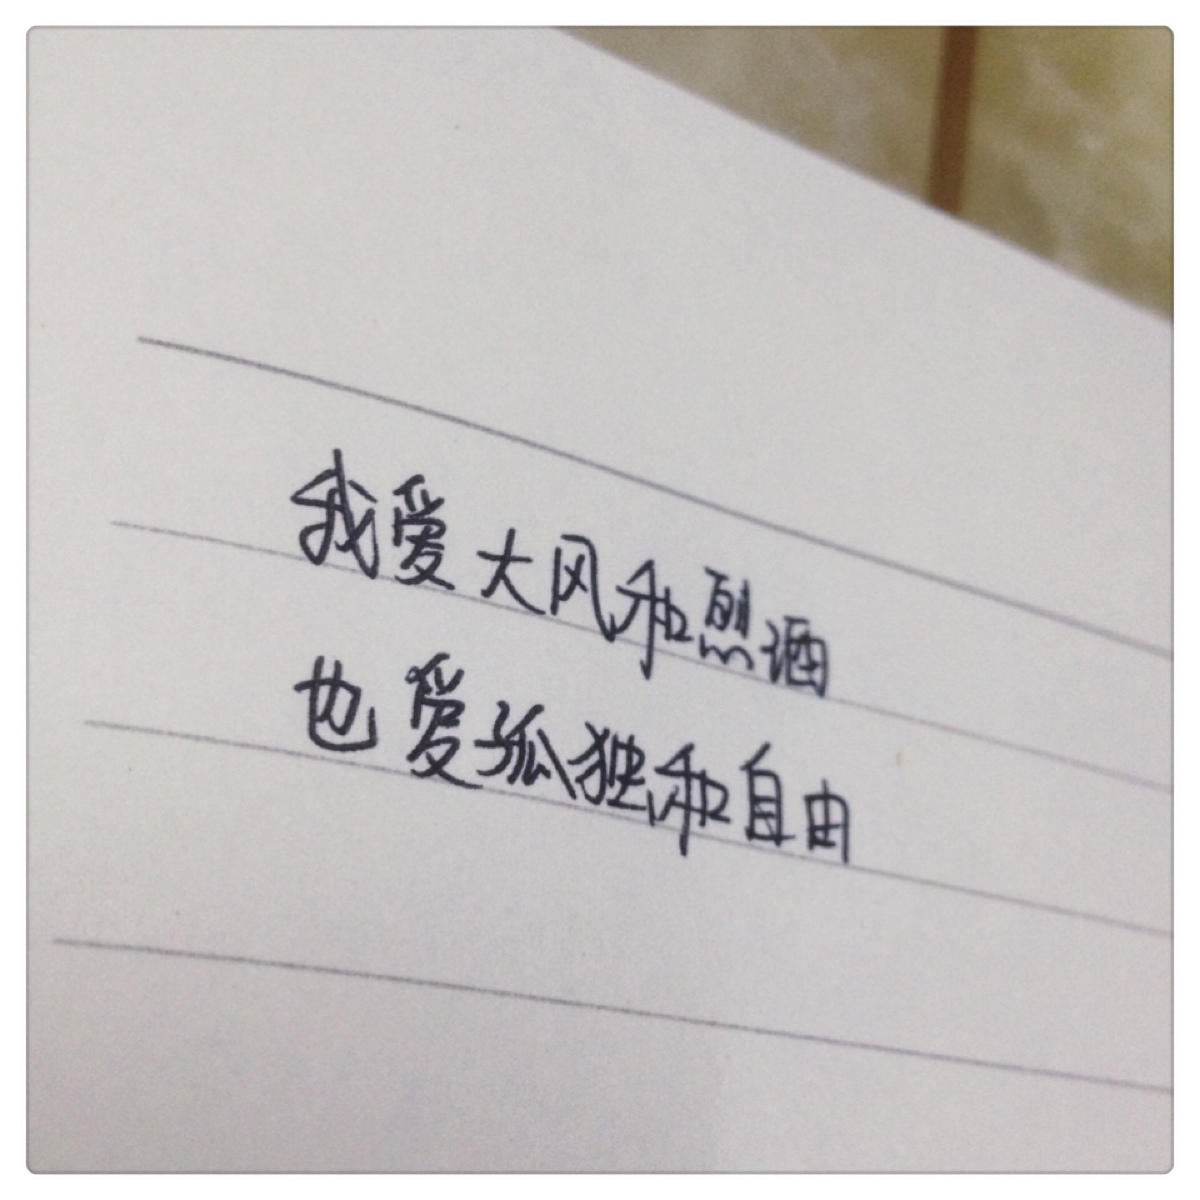 我爱大风和烈酒
也爱孤独和自由